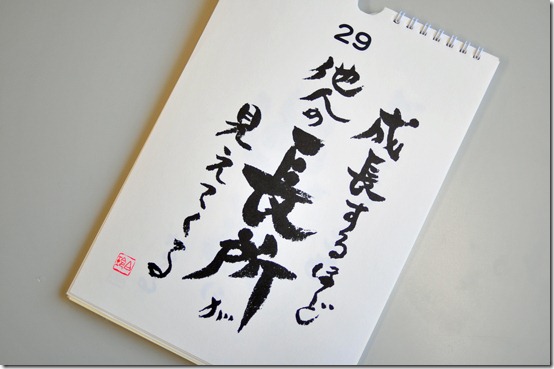 29
成長するほど
他人の長所が
見えてくる